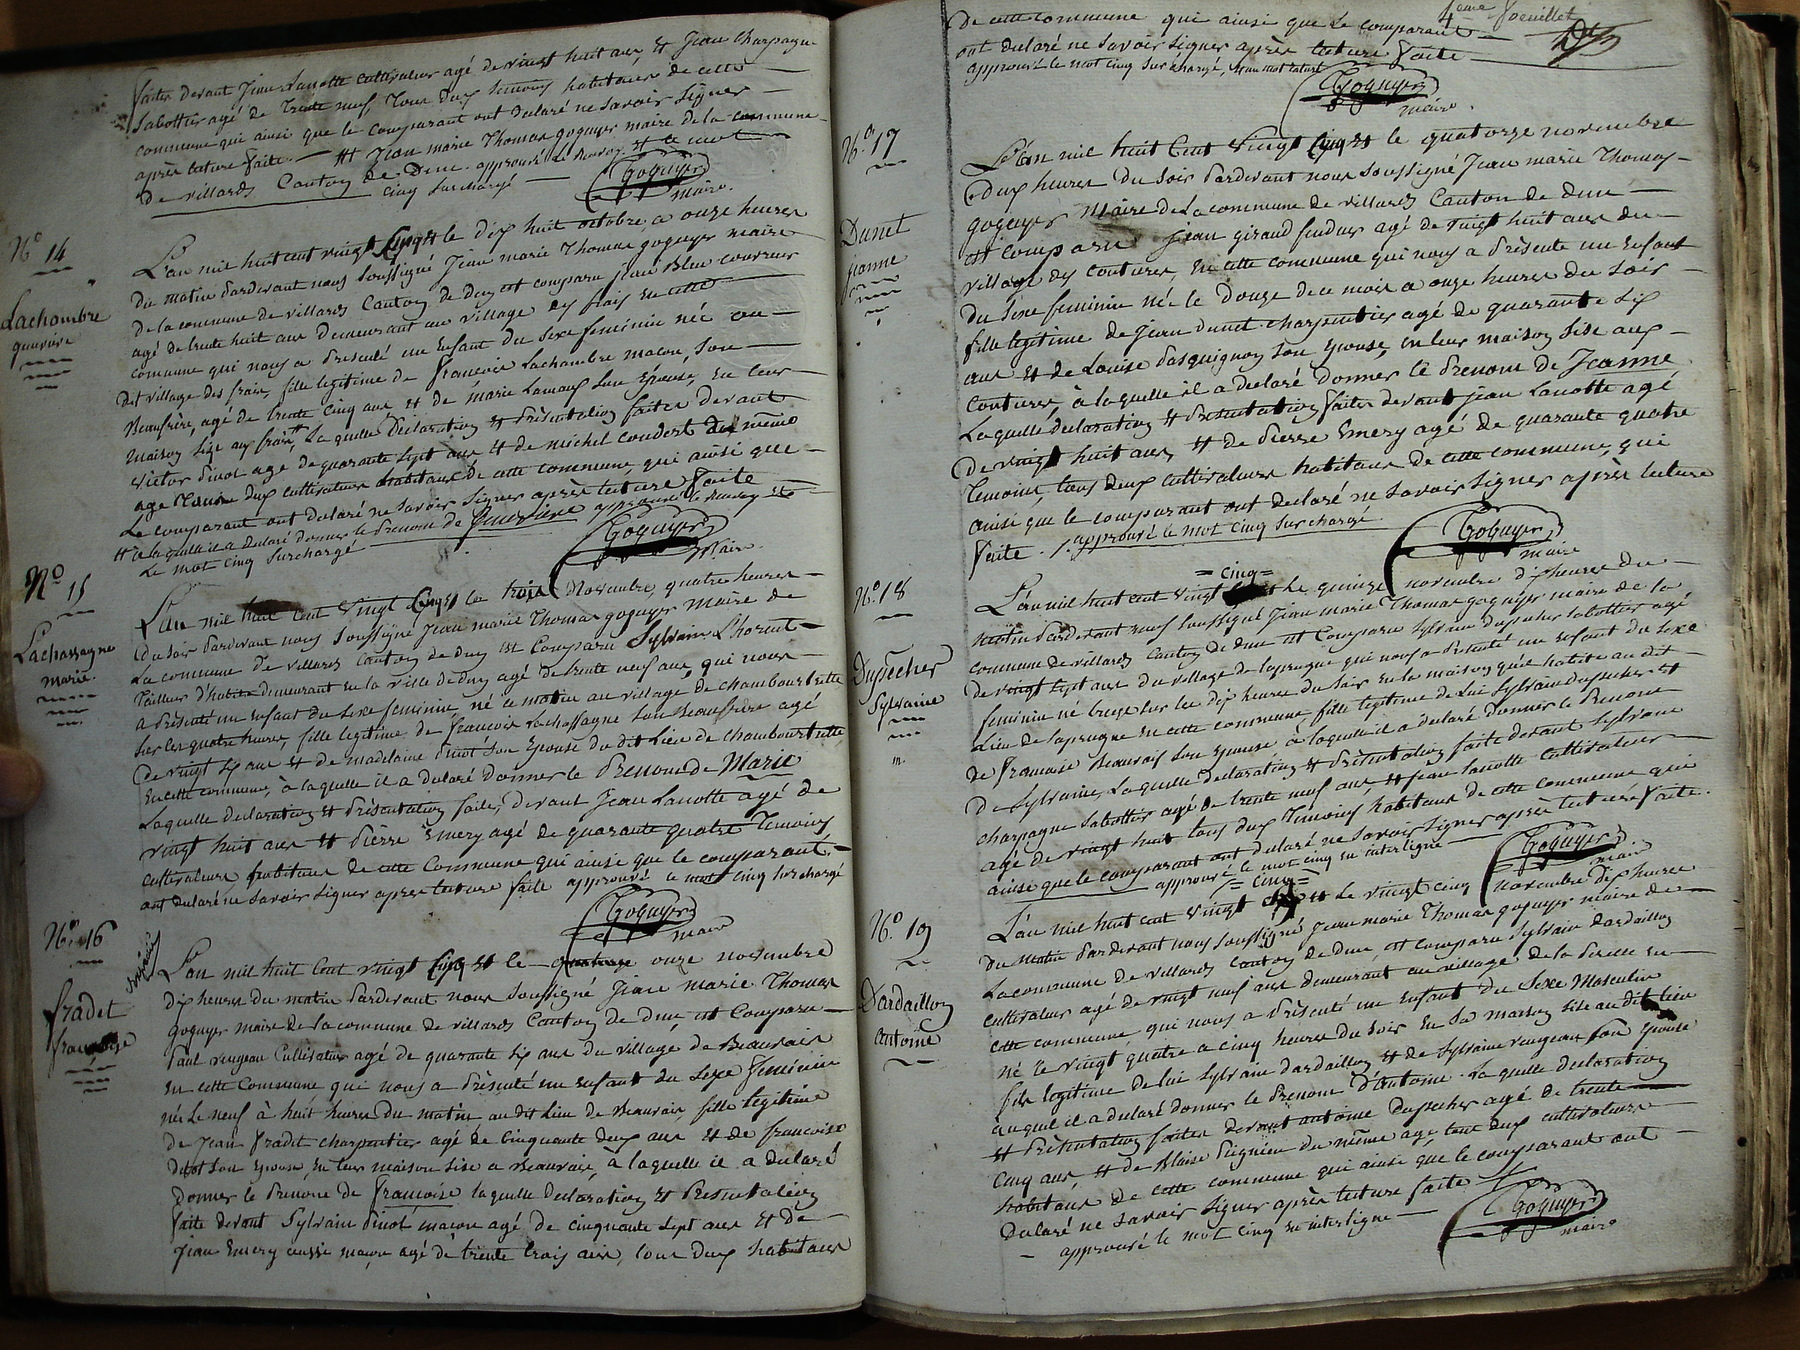 faites devant Jean Lanotte cultivateur agé de vingt huit ans, et Jean Charpagne
Sabottier agé de trente neuf, tous deux témoins habitans de cette
commune qui ainsi que le comparant ont declaré ne savoir signer
après lecture faite. — ## Jean marie Thomas goguyer maire de la commune
de villards Canton de Dun. approuvé le renvoy et le mot
cinq surchargé
Goguyer
maire.
N° 14
Lachambre
L'an mil huit cent vingt Cinq et le dix huit octobre, a onze heures
du matin pardevant nous soussigné Jean marie Thomas goguyer maire
de la commune de villards Canton de Dun est comparu jean Blue couvreur
agé de trente huit ans demeurant au village des frais en cette
commune qui nous a presenté un enfant du sexe feminin née au
dit village des frais, fille legitime de francois Lachambre macon, son
Beaufrère, agé de trente cinq ans et de marie Lamoux son Epouse, en leur
maison Size aux frais ## Laquelle Déclaration et présentation faites devant
victor pinot agé de quarante sept ans et de michel coudert du même
age Tous deux cultivateurs habitans de cette commune, qui ainsi que
Le comparant ont declaré ne savoir signer après lecture faite
## a laquelle il a declaré donner le prenom de approuvé le renvoy et
Le mot cinq surchargé
Goguyer
Maire.
N° 15
Lachassagne
marie.
L'an mil huit cent vingt Cinq et le trois Novembre, quatre heures
du soir pardevant nous soussigné Jean marie Thomas goguyer maire de
La commune de villards canton de dun est Comparu Sylvain Lhorent
Tailleur d'habits demeurant en la ville de dun agé de trente neuf ans, qui nous
a présenté un enfant du sexe feminin né ce matin au village de chambourtrette
sur les quatre heures, fille legitime de francois Lachassagne son Beaufrère agé
de vingt six ans et de madelaine pinot son Epouse du dit Lieu de chambourtrette
En cette commune, à laquelle il a declaré donner le Prenom de Marie
Laquelle declaration et présentation faite, devant Jean Lanotte agé de
vingt huit ans et Pierre Emery agé de quarante quatre Temoins
cultivateurs, habitans de cette Commune qui ainsi que le comparant
ont declaré ne savoir signer après lecture faite approuvé le mot cinq surchargé
Goguyer
maire
N° 16
fradet
francoise
L'an mil huit Cent vingt Cinq et le onze novembre
dix heures du matin pardevant nous soussigné Jean marie Thomas
Goguyer maire de la commune de villards Canton de Dun, est Comparu
Paul vingeau Cultivateur agé de quarante six ans du village de Beauvais
en cette Commune qui nous a présenté un enfant du Sexe feminin
née Le neuf à huit heures du matin au dit Lieu de Beauvais fille legitime
de Jean fradet charpentier agé de Cinquante deux ans et de francoise
son epouse, en leur maison sise a Beauvais, à laquelle il a declaré
donner le prenom de francoise laquelle declaration et présentation
faite devant Sylvain Pinot macon agé de cinquante sept ans et de
Jean Emery aussi macon agé de trente trois ans, tous deux habitans
4eme feuillet
de cette commune qui ainsi que le comparant
ont declaré ne savoir signer après lecture faite
approuvé le mot cinq surchargé,
Goguyer
maire.
N° 17
Dunet
jeanne
L'an mil huit Cent vingt Cinq et le quatorze novembre
deux heures du soir pardevant nous soussigné Jean marie Thomas
goguyer Maire de La commune de villards Canton de dun
est comparu Jean giraud fendeur agé de vingt huit ans du
village des coutures, en cette commune qui nous a présenté un enfant
du sexe feminin né le douze de ce mois a onze heures du soir
fille legitime de jean dunet charpentier agé de quarante six
ans et de Louise pasquignon son epouse, en leur maison sise aux
coutures, à laquelle il a declaré donner le prenom de Jeanne
Laquelle declaration et présentation faites devant jean Lanotte agé
de vingt huit ans, et de pierre Emery agé de quarante quatre
temoins, tous deux cultivateurs habitans de cette commune, qui
ainsi que le comparant ont declaré ne savoir signer après lecture
faite ./. approuvé le mot cinq surchargé
Goguyer
maire
N° 18
Duprecher
Sylvaine
= cinq =
L'an mil huit cent vingt et le quinze novembre dix heures du
matin pardevant nous soussigné Jean marie Thomas goguyer maire de la
commune de villards Canton de dun est Comparu Sylvain sabottier agé
de vingt sept ans du village de laprugne qui nous a présenté un enfant du sexe
feminin né treize sur les dix heures du soir en la maison qu'il habite au dit
Lieu de laprugne en cette commune, fille legitime de lui Sylvain et
de francoise Beauvais son epouse à laquelle il a declaré donner le prenom
de Sylvaine, Laquelle declaration et présentation faite devant Sylvain
charpagne sabottier agé de trente neuf ans, et jean lanotte cultivateur
agé de vingt huit tous deux temoins habitans de cette commune qui
ainsi que le comparant ont declaré ne savoir signer après lecture faite.
approuvé le mot cinq en interligne
Goguyer
maire
N° 19
Dardaillon
antoine
= cinq =
L'an mil huit cent vingt et le vingt cinq novembre dix heures
du matin pardevant nous soussigné Jean marie Thomas goguyer maire de
La commune de villards canton de dun, est comparu Sylvain dardaillon
cultivateur agé de vingt neuf ans demeurant au village de la en
cette commune, qui nous a présenté un enfant du sexe masculin
né le vingt quatre a cinq heures du soir en sa maison sise au dit lieu
fils legitime de lui Sylvain dardaillon et de Sylvaine vingeau son epouse
auquel il a declaré donner le prenom d'antoine. Laquelle declaration
et présentation faites devant antoine agé de trente
cinq ans, et de Blaise du même age, tous deux cultivateurs
habitans de cette commune qui ainsi que le comparant ont
declaré ne savoir signer après lecture faite
approuvé le mot cinq en interligne
Goguyer
maire